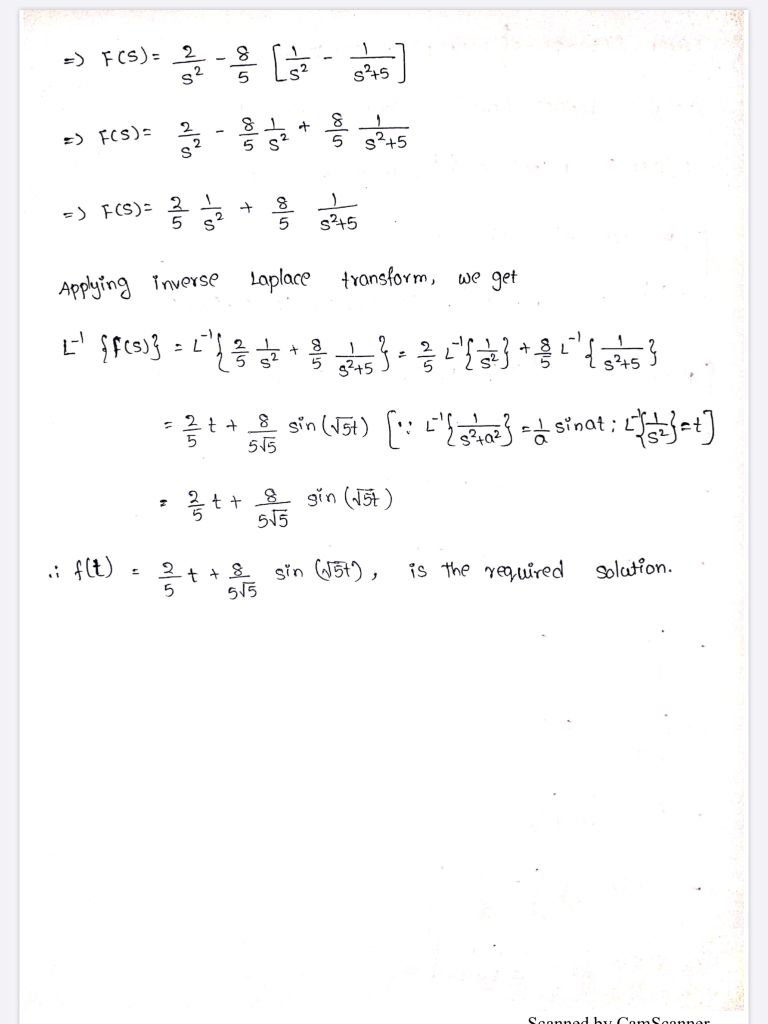 => F(S) = 2/s² - 8/5 [1/s² - 1/s²+5]
=> F(S) = 2/s² - 8/5 1/s² + 8/5 1/s²+5
=> F(S) = 2/5 1/s² + 8/5 1/s²+5
Applying inverse Laplace transform, we get
L⁻¹ {F(S)} = L⁻¹{2/5 1/s² + 8/5 1/s²+5} = 2/5 L⁻¹{1/s²} + 8/5 L⁻¹{1/s²+5}
= 2/5 t + 8/5√5 sin (√5t) [∵ L⁻¹{1/s²+a²} = 1/a sinat ; L⁻¹{1/s²} = t]
= 2/5 t + 8/5√5 sin (√5t)
∴ f(t) = 2/5 t + 8/5√5 sin (√5t), is the required solution.
Scanned by CamScanner